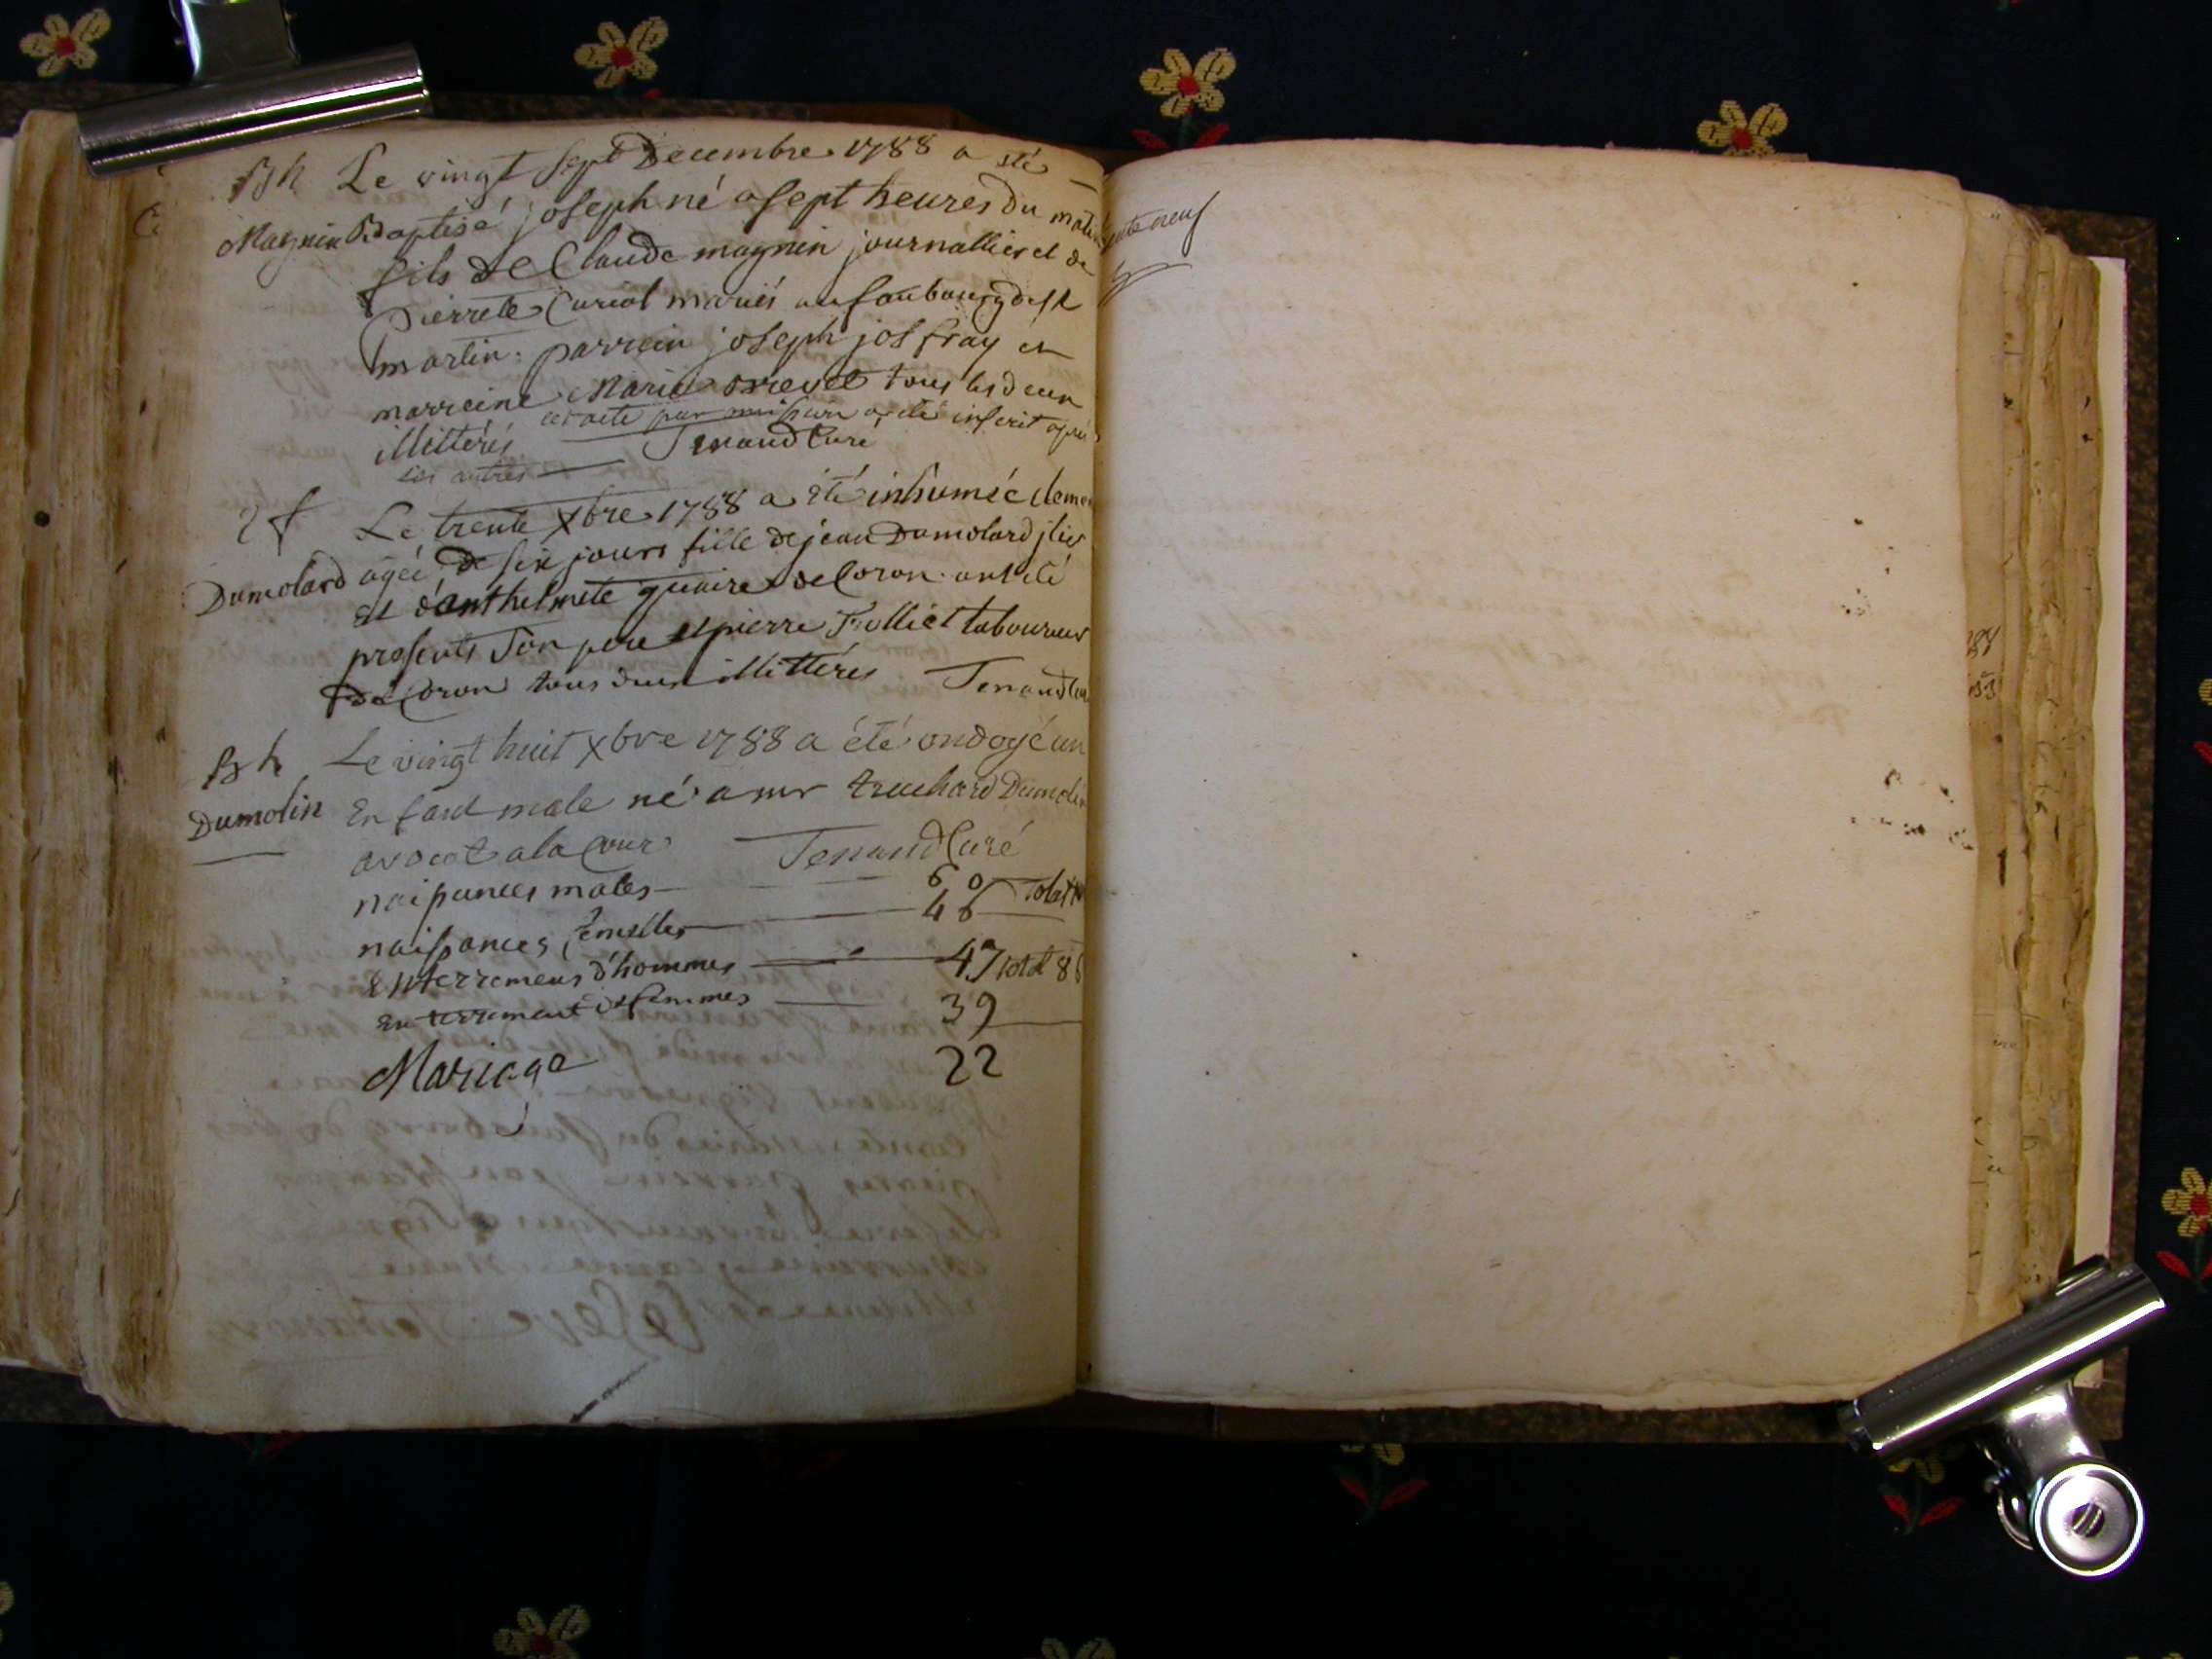 Bh Le vingt sept Decembre 1788 a été
Magnin Baptisé joseph né a sept heures du matin
fils de Claude magnin journallier et de
Pierrete Curial mariés au faubourg de st
martin. parrein joseph josfray et
marreine Marie orrevet tous les deux
cet acte par a été inscrit après
illittérés Tenand Curé
les autres
Le trente xbre 1788 a été inhumée
Dumolard agée de six jours fille de jean Dumolard jlier
et d'anthelmete guaire de Coron. ont été
presents son pere et pierre Folliet laboureur
de Coron tous deux illittérés Tenand
Bh Le vingt huit xbre 1788 a été ondoyé un
Dumolin Enfant male né a mr truchard Dumolin
avocat a la Cour Tenand Curé
naissances males 60 total
naissances femelles 46
Enterremens d'hommes 47 total 86
Enterrement de femmes 39
Mariage 22